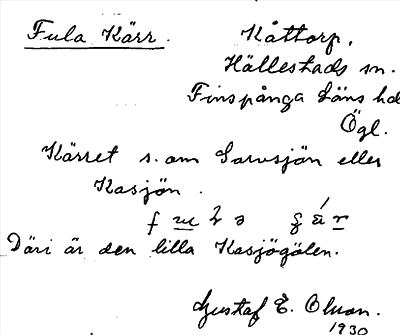 Fula Kärr. Kåttorp.
Hällestads sn.
Finspånga Läns hd
Ögl.
Kärret s. om Sarvsjön eller
Kasjön.
Däri är den lilla Kasjögölen.
Gustaf E. Olson.
1930